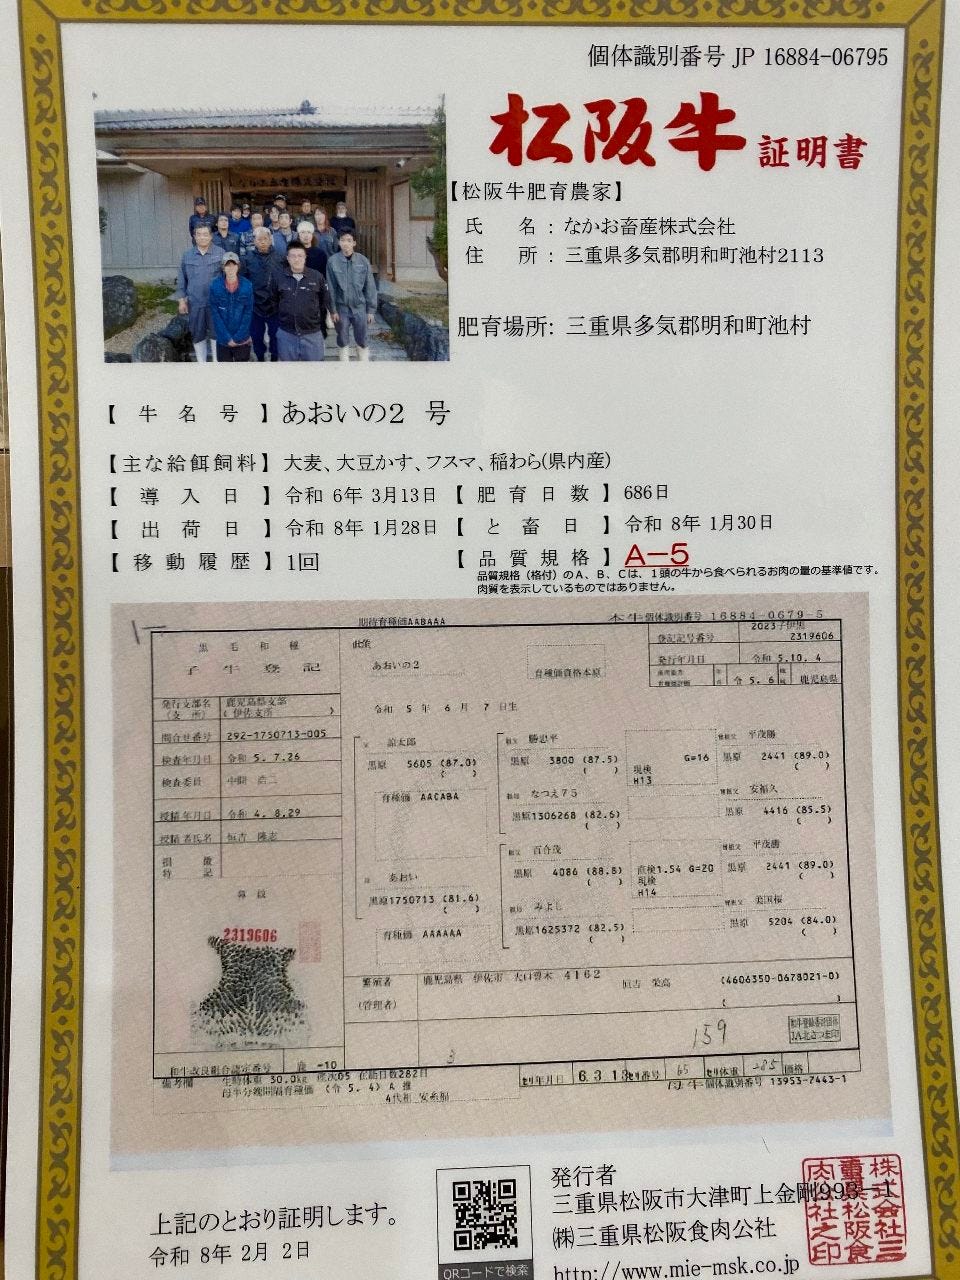 個体識別番号 JP 16884-06795
松阪牛 証明書
【松阪牛肥育農家】
氏 名 : なかお畜産株式会社
住 所 : 三重県多気郡明和町池村2113
肥育場所: 三重県多気郡明和町池村
【 牛 名 号 】 あおいの2 号
【主な給餌飼料】 大麦、大豆かす、フスマ、稲わら(県内産)
【 導 入 日 】 令和 6年 3月13日 【 肥 育 日 数 】 686日
【 出 荷 日 】 令和 8年 1月28日 【 と 畜 日 】 令和 8年 1月30日
【 移 動 履 歴 】 1回 【 品 質 規 格 】 A-5
品質規格(格付)のA、B、Cは、1頭の牛から食べられるお肉の量の基準値です。
肉質を表示しているものではありません。
期待育種価AABAAA
本牛個体識別番号 16884-0679-5
黒毛和種
子牛登記
あおいの2
育種価資格本原
2023子伊黒
登記記号番号 2319606
発行年月日 令和 5.10. 4
令 5. 6 鹿児島県
発行支部名 鹿児島県支部
(支 所) ( 伊佐支所 )
令和 5 年 6 月 7 日生
問合せ番号 292-1750713-005
検査年月日 令和 5. 7.26
検査委員
授精年月日 令和 4. 8.29
授精者氏名 恒吉 隆志
損 徴
特 記
鼻紋
2319606
父 諒太郎
黒原 5605 (87.0)
育種価 AACABA
母 あおい
黒原1750713 (81.6)
育種価 AAAAAA
祖父 勝忠平
黒原 3800 (87.5)
現検
H13
G=16
祖母 なつえ75
黒原1306268 (82.6)
祖父 百合茂
黒原 4086 (88.8)
直検1.54 G=20
現検
H14
祖母 みよし
黒原1625372 (82.5)
曽祖父 平茂勝
黒原 2441 (89.0)
曽祖父 安福久
黒原 4416 (85.5)
曽祖父 平茂勝
黒原 2441 (89.0)
曽祖父 美国桜
黒原 5204 (84.0)
繁殖者 鹿児島県 伊佐市 大口曽木 4162 恒吉 栄高 (4604350-0678021-0)
(管理者)
159
3
和牛改良組合認定番号 鹿 -10
備考欄 生時体重 30.0kg 産次05 在胎日数282日
母牛分娩間隔育種価 (令 5. 4) A 推
4代祖 安糸福
せり年月日 6. 3. 13 せり番号 65 せり体重 285 価格
母牛個体識別番号 13953-7443-1
上記のとおり証明します。
令和 8年 2月 2日
QRコードで検索
発行者
三重県松阪市大津町上金剛993-1
㈱三重県松阪食肉公社
http://www.mie-msk.co.jp
株式会社三重県松阪食肉公社之印